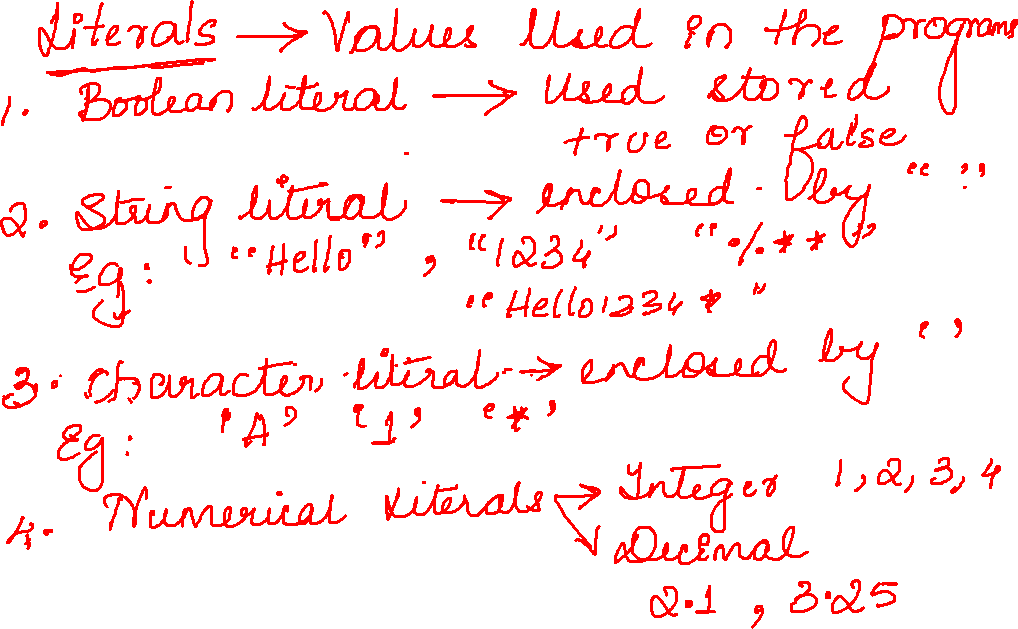 Literals → Values Used in the programs
1. Boolean literal → Used stored
true or false
2. String literal → enclosed by " "
Eg: "Hello", "1234" "%**"
"Hello1234*"
3. Character literal → enclosed by ' '
Eg: 'A' '1' '*'
4. Numerical Literals → Integer 1, 2, 3, 4
Decimal
2.1 , 3.25